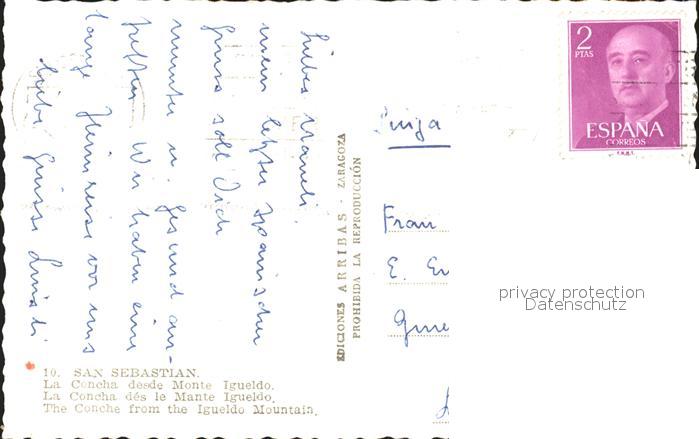 Liebes Mandi.
mein letzter spanischer
Gruss soll Dich
munter u. gesund an-
treffen Wir haben eine
lange Heimreise vor uns
Liebe Grüsse
2
PTAS
ESPAÑA
CORREOS
Frau
E.
EDICIONES ARRIBAS - ZARAGOZA
PROHIBIDA LA REPRODUCCIÓN
privacy protection
Datenschutz
10. SAN SEBASTIAN.
La Concha desde Monte Igueldo.
La Concha dés le Mante Igueldo.
The Conche from the Igueldo Mountain.